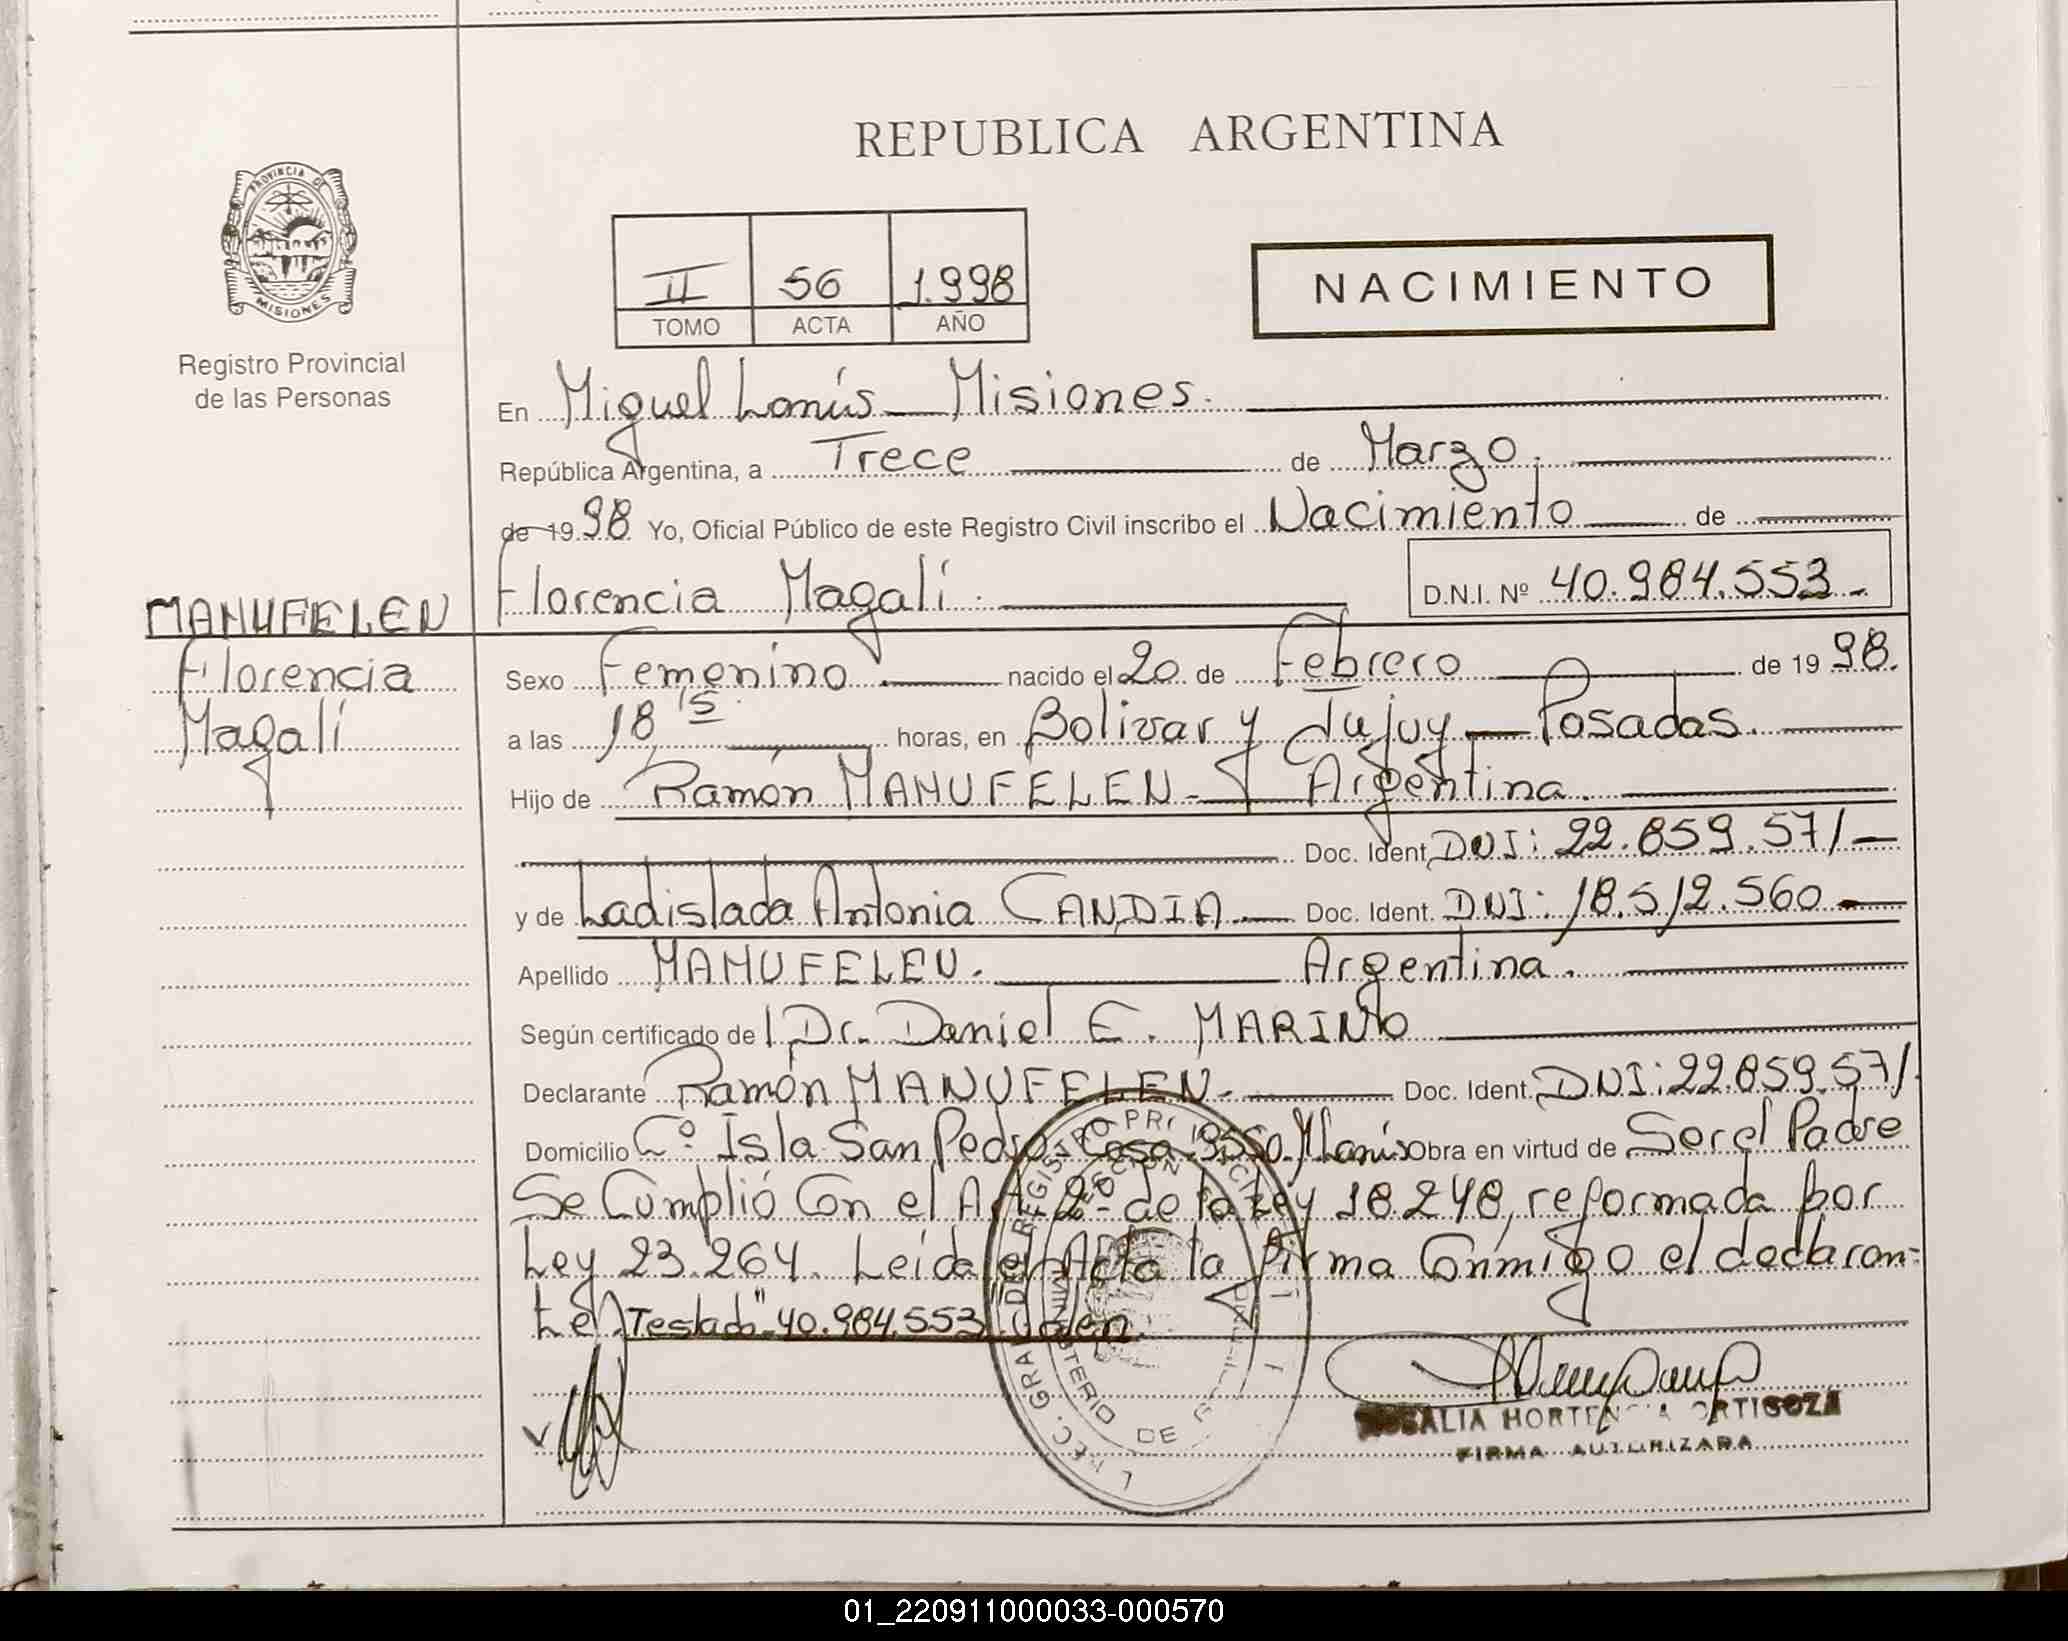 REPUBLICA ARGENTINA
PROVINCIA DE
MISIONES
Registro Provincial
de las Personas
II 56 1.998
TOMO ACTA AÑO
NACIMIENTO
En Miguel Lanús - Misiones.
República Argentina, a Trece de Marzo.
de 19 98 Yo, Oficial Público de este Registro Civil inscribo el Nacimiento de
Florencia Magalí. D.N.I. Nº 40.984.553.-
MANUFELEN
Florencia
Magalí
Sexo Femenino. nacido el 20 de Febrero de 19 98.
a las 18,15 horas, en Bolivar y Jujuy - Posadas.
Hijo de Ramón MANUFELEN - Argentina.
Doc. Ident. DNI: 22.859.571-
y de Ladislada Antonia CANDIA Doc. Ident. DNI: 18.512.560-
Apellido MANUFELEN. Argentina.
Según certificado del Dr. Daniel E. MARINO
Declarante Ramón MANUFELEN. Doc. Ident. DNI: 22.859.571.
Domicilio Cº. Isla San Pedro Casa M Lanús Obra en virtud de Ser el Padre
Se Cumplió Con el Art. 2º de la Ley 18.248, reformada por
Ley 23.264. Leída el Acta la firma Conmigo el declaran-
te Testado "40.984.553
REGISTRO
MINISTERIO DE
ROSALIA HORTENCIA ORTIGOZA
FIRMA AUTORIZADA
01_220911000033-000570